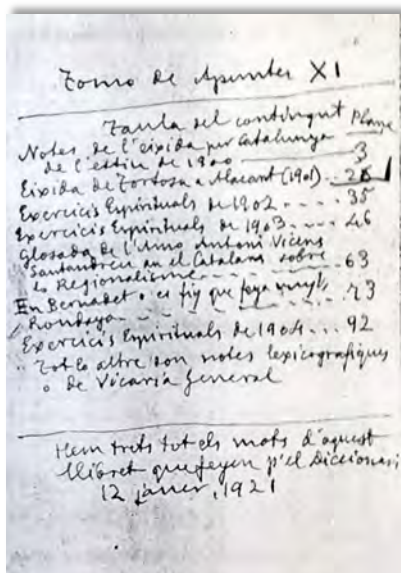 Tomo de Apuntes XI
Taula del contingut Plana
Notes de l'eixida per Catalunya
de l'estiu de 1900 3
Eixida de Tortosa a Alacant (1901) .. 26
Exercicis Espirituals de 1902 .... 35
Exercicis Espirituals de 1903 .... 46
Glosada de l'Amo Antoni Vicens
Santandreu an el Catalans sobre
lo Regionalisme 63
En Bernadet o es fiy que feya vuyt,
Rondaya 73
Exercicis Espirituals de 1904 ... 92
Tot lo altre son notes lexicografiques
o de Vicaria General
Hem trets tot els mots d'aquest
llibret que feyen p'el Diccionari
12 janer, 1921